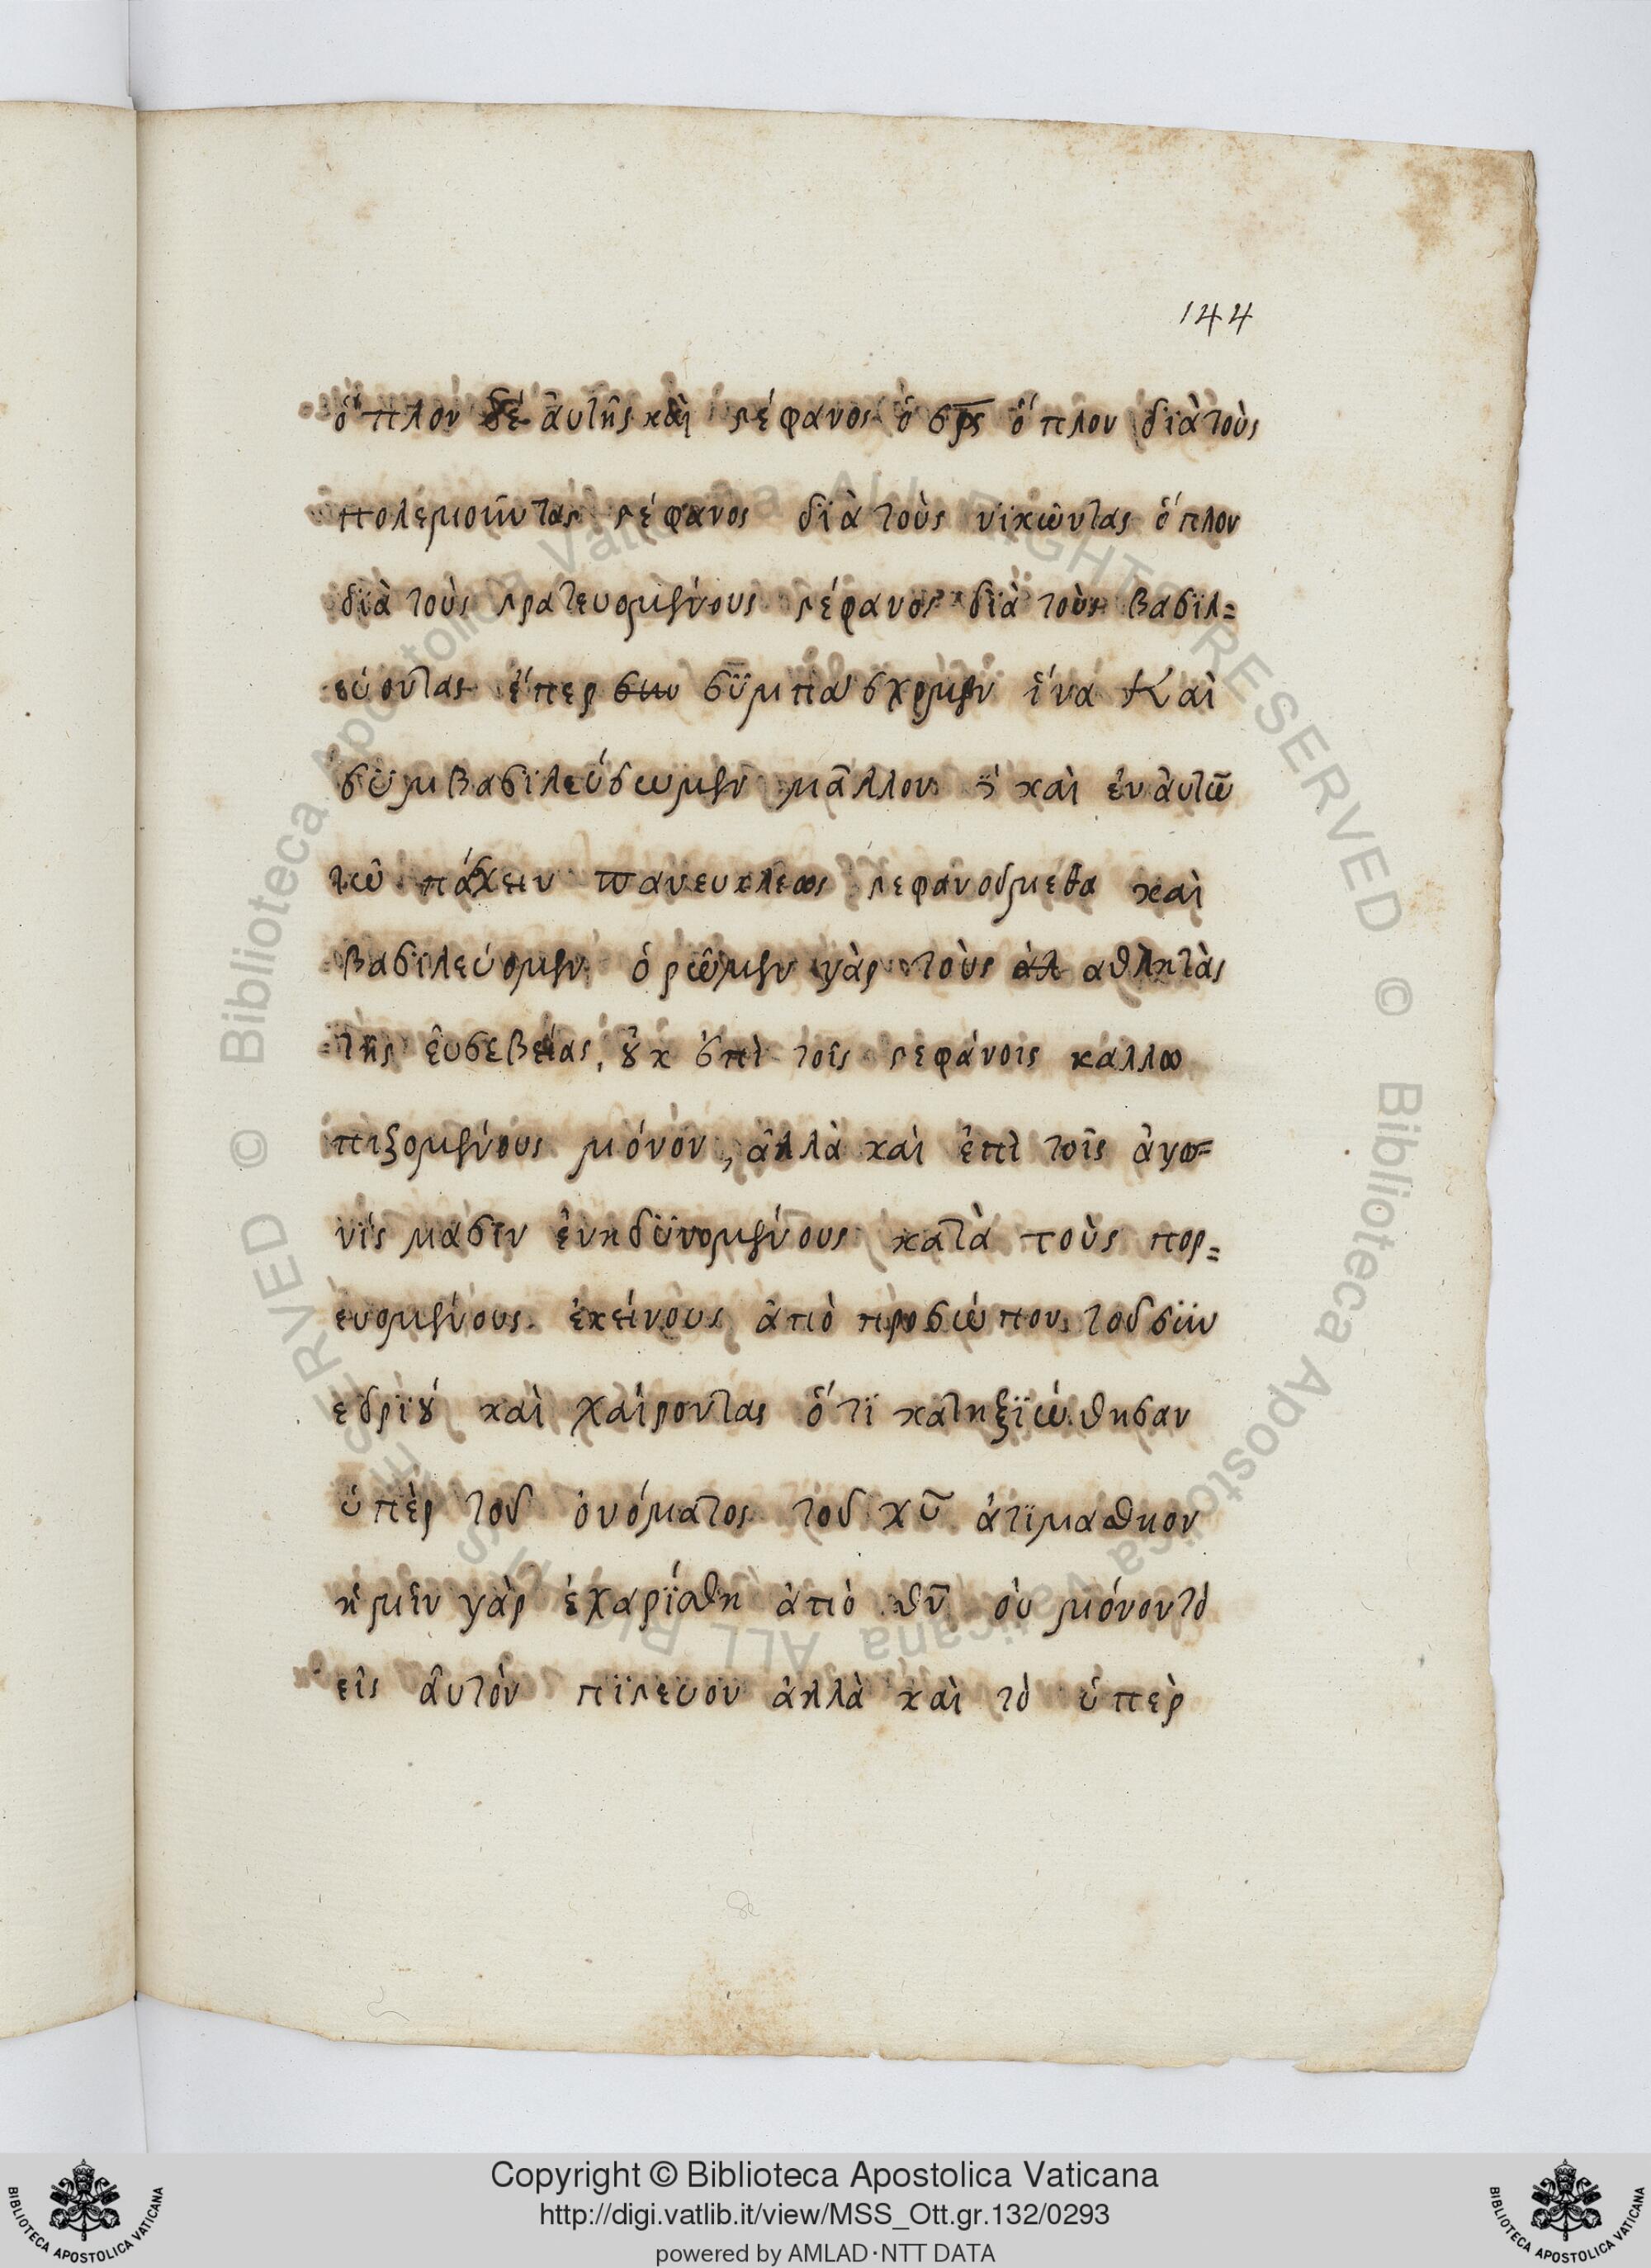 144
ὅπλον δὲ ἀυτῆς καὶ στέφανος ὁ σρς ὅπλον διὰ τοὺς
πολεμοῦντας στέφανος διὰ τοὺς νικῶντας ὅπλον
διὰ τοὺς στρατευομένους στέφανος διὰ τοὺς βασιλ=
εύοντας ἔπερ συμπάσχομεν ἵνα καὶ
συμβασιλεύσωμεν μᾶλλον δὲ καὶ ἐν ἀυτῶ
τῶ πάσχειν πανευκλεως στεφανούμεθα καὶ
βασιλεύομεν ὁρῶμεν γὰρ τοὺς αθλητὰς
τῆς ἐυσεβείας, ȣκ ἐπὶ τοῖς στεφάνοις καλλω
πιζομένους μόνον, ἀλλὰ καὶ ἐπὶ τοῖς ἀγω=
νίσμασιν ἐνηδυνομένους κατὰ τοὺς πορ=
ευομένους ἐκείνους ἀπὸ προσώπους τοῦ συν
εδρίȣ καὶ χαίροντας ὅτι κατηξιώθησαν
ὑπὲρ τοῦ ὀνόματος τοῦ χυ ἀτιμασθηον
ἡμῖν γὰρ ἐχαρίσθη ἀπὸ θυ οὐ μόνον τὸ
εἰς ἀυτὸν πιστεύον ἀλλὰ καὶ τὸ ὑπὲρ
Biblioteca Apostolica Vaticana ALL RIGHTS RESERVED ©
Biblioteca Apostolica Vaticana ALL RIGHTS RESERVED ©
Copyright © Biblioteca Apostolica Vaticana
http://digi.vatlib.it/view/MSS_Ott.gr.132/0293
powered by AMLAD·NTT DATA
BIBLIOTECA APOSTOLICA VATICANA
BIBLIOTECA APOSTOLICA VATICANA